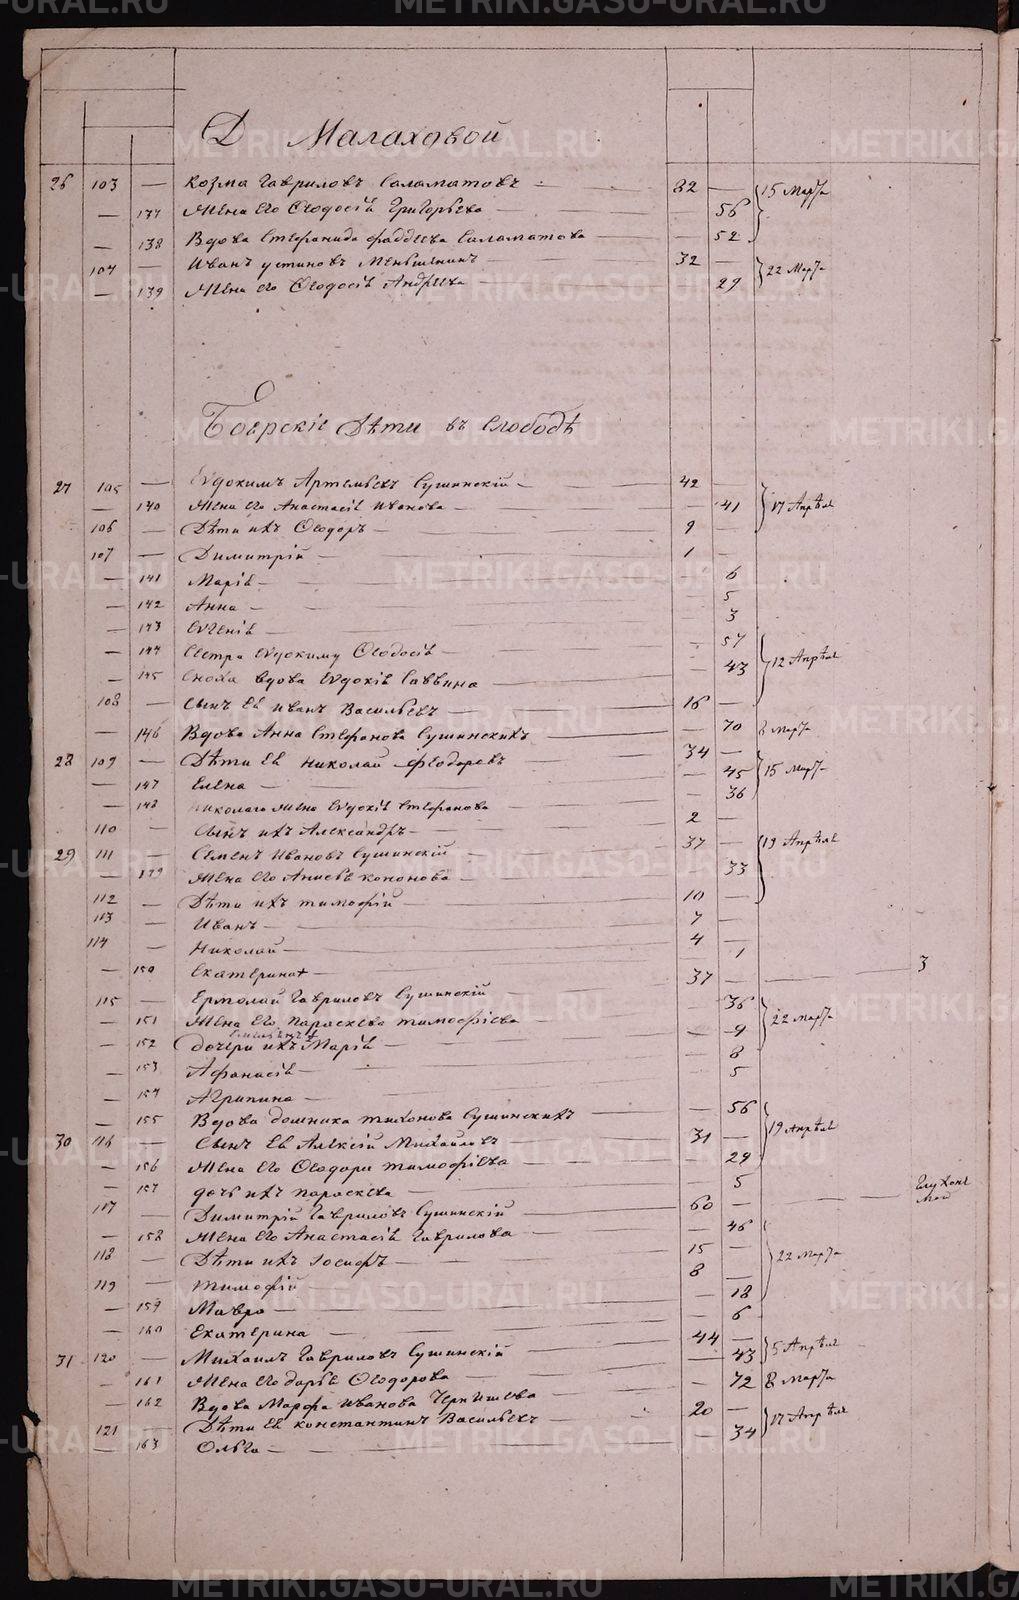 Д Малаховой
26 103 — Козма Гавриловъ Саламатовъ 82 — 15 Марта
— 137 Жена его Ѳеодосія Григорьева — 56
— 138 Вдова Стефанида Фаддеева Саламатова — 52
104 — Иванъ Устиновъ Меньшенинъ 32 — 22 Марта
— 139 Жена его Ѳеодосія Андреева — 29
Боярскіе Дѣти въ Слободѣ
27 105 — Евдокимъ Артемьевъ Сушинскій 42 —
— 140 Жена его Анастасія Иванова — 41 17 Апрѣля
106 — Дѣти ихъ Ѳеодоръ 9 —
107 — Димитрій 1 —
— 141 Марія — 6
— 142 Анна — 5
— 143 Евгенія — 3
— 144 Сестра Евдокиму Ѳеодосія — 57
— 145 Сноха вдова Евдокія Саввина — 43 12 Апрѣля
108 — Сынъ ея Иванъ Васильевъ 16 —
— 146 Вдова Анна Стефанова Сушинскихъ — 70 8 Марта
28 109 — Дѣти ея Николай Ѳеодоровъ 34 —
— 147 Елена — 45 15 Марта
— 148 Николая жена Евдокія Стефанова — 36
110 — Сынъ ихъ Александръ 2 —
29 111 — Семенъ Ивановъ Сушинскій 37 — 19 Апрѣля
— 149 Жена его Анисья Кононова — 33
112 — Дѣти ихъ Тимофій 10 —
113 — Иванъ 7
114 — Николай 4
— 150 Екатерина 1
115 — Ермолай Гавриловъ Сушинскій 37 — 3
— 151 Жена его Параскева Тимофіева — 36 22 Марта
— 152 Дочери ихъ Марія — 9
— 153 Афанасія — 8
— 154 Агрипина 5
— 155 Вдова Домника Тихонова Сушинскихъ — 56
30 116 — Сынъ ея Алексій Михайловъ 31 — 19 Апрѣля
— 156 Жена его Ѳеодора Тимофіева — 29
— 157 дочь ихъ Параскева — 5
117 — Димитрій Гавриловъ Сушинскій 60 — Глухонемой
— 158 Жена его Анастасія Гаврилова — 46
118 — Дѣти ихъ Іосифъ 15 — 22 Марта
119 — Тимофій 8 —
— 159 Мавра — 18
— 160 Екатерина — 6
31 120 — Михаилъ Гавриловъ Сушинскій 44 — 5 Апрѣля
— 161 Жена его Дарья Ѳеодорова — 43
— 162 Вдова Марфа Иванова Чернышева — 72 8 Марта
121 — Дѣти ея Константинъ Васильевъ 20 — 17 Апрѣля
— 163 Ольга — 34
METRIKI.GASO-URAL.RU